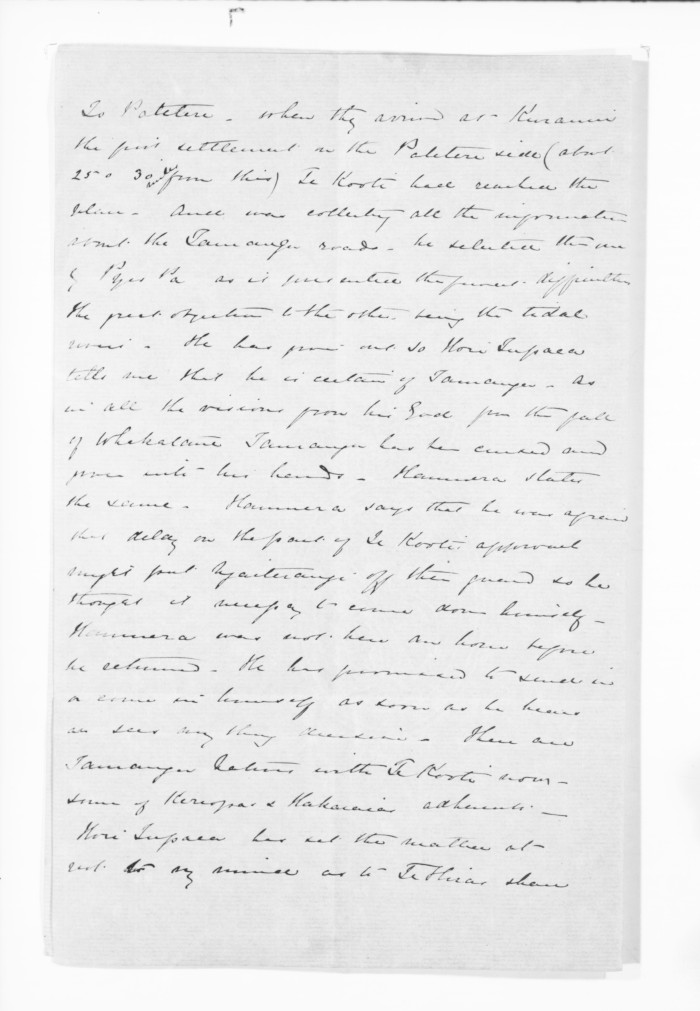 To Patetere - when they arrived at Kuranui
the first settlement on the Patetere side (about
25 o 30 from this) Te Kooti had reached the
place - and was collecting all the information
about the Tauranga roads - he selected the one
by Pyes Pa as it presented the fewest difficulties
the great objection to the other being the tidal
rivers - He has given out so Hori Tupaea
tells me that he is certain of Tauranga - as
in all the visions from his God from the fall
of Whakatane Tauranga has been cursed and
given into his hands - Hamuera states
the same - Hamuera says that he was afraid
this delay on the part of Te Kooti's approval
might put Ngaiterangi off their guard so he
thought it necessary to come down himself -
Hamuera was not here an hour before
he returned - He has promised to send in
or come in himself as soon as he hears
or sees any thing decisive - There are
Tauranga natives with Te Kooti now -
some of Kereopas & Hakaraias adherents -
Hori Tupaea has set the matter at
rest to my mind as to Te Hiras share